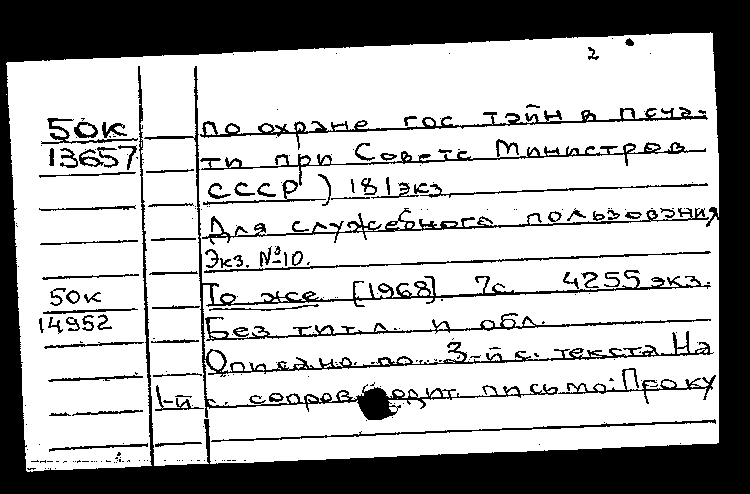 2
50к по охране гос. тайн в печа-
13657 ти при Совете Министров
СССР) 181экз.
Для служебного пользования
Экз. №10.
50к То же [1968]. 7с. 4255экз.
14952 Без тит. л. и обл.
Описано по 3-й с. текста. На
1-й с. сопроводит. письмо: Проку